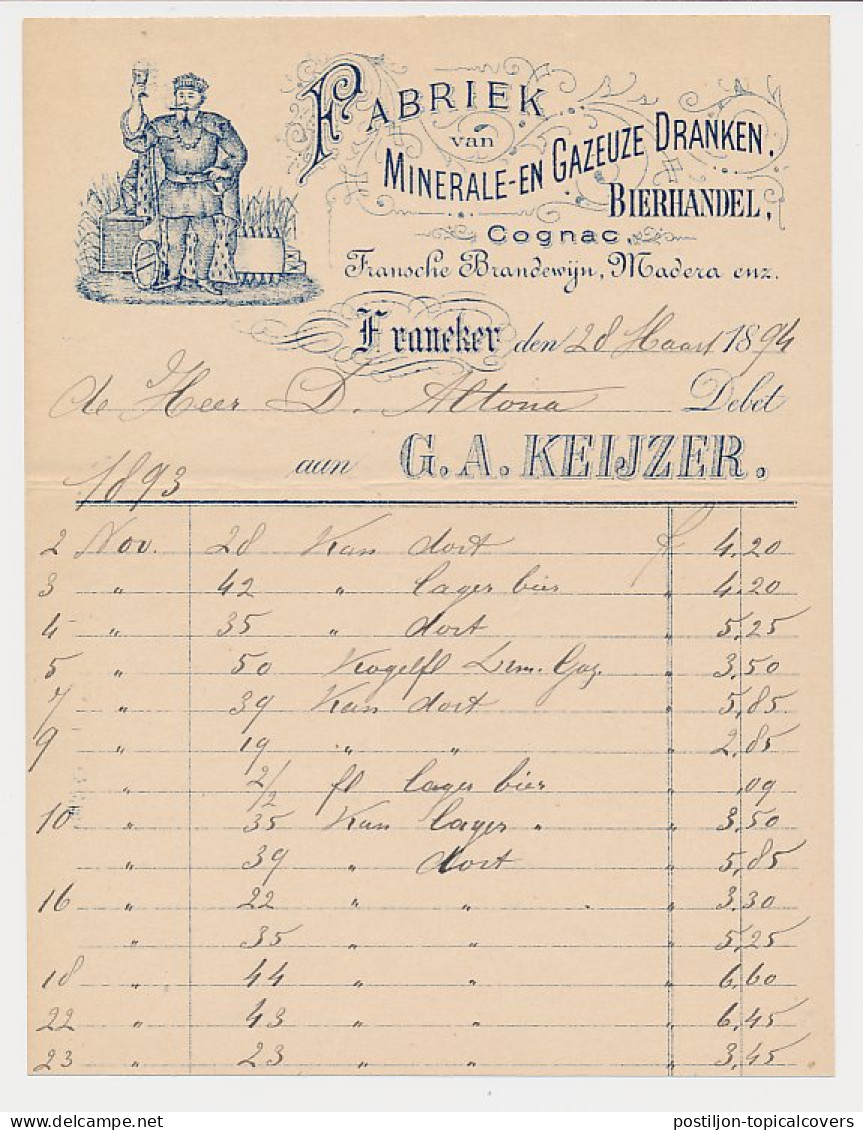 FABRIEK
van
MINERALE-EN GAZEUZE DRANKEN.
BIERHANDEL,
Cognac,
Fransche Brandewijn, Madera enz.
Franeker den 28 Maart 1894
de Heer D. Altona Debet
aan G. A. KEIJZER.
1893
2 Nov. 28 Kan dort f 4.20
3 " 42 " lager bier " 4.20
4 " 35 " dort " 5.25
5 " 50 Kogelfl Lim. Gaz. " 3.50
7 " 39 Kan dort " 5.85
9 " 19 " " " 2.85
" 2/2 fl lager bier " .09
10 " 35 Kan lager " " 3.50
" 39 " dort " 5.85
16 " 22 " " " 3.30
" 35 " " " 5.25
18 " 44 " " " 6.60
22 " 43 " " " 6.45
23 " 23 " " " 3.45
postiljon-topicalcovers